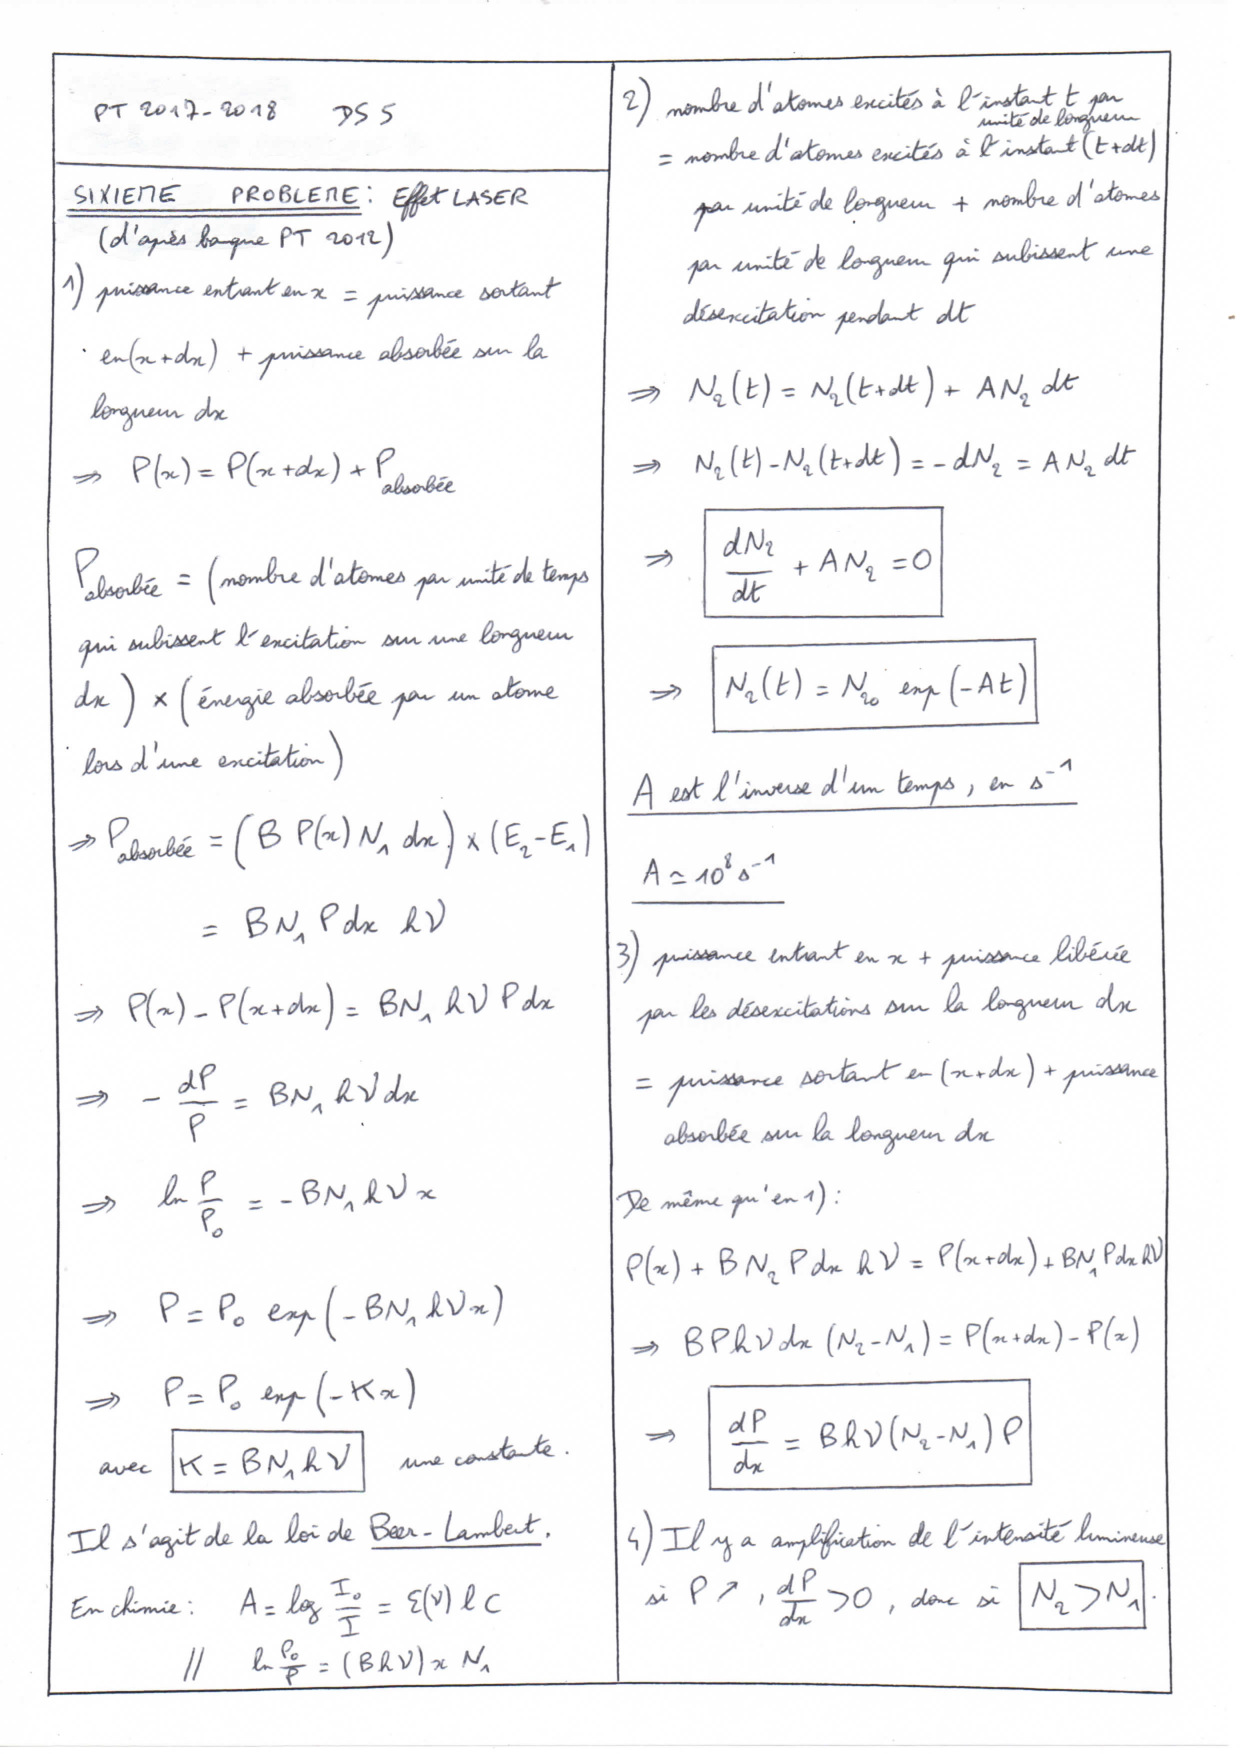 PT 2017-2018 DS 5
SIXIEME PROBLEME : Effet LASER
(d'après banque PT 2012)
1) puissance entrant en x = puissance sortant
en (x+dx) + puissance absorbée sur la
longueur dx
⇒ P(x) = P(x+dx) + P absorbée
P absorbée = (nombre d'atomes par unité de temps
qui subissent l'excitation sur une longueur
dx) × (énergie absorbée par un atome
lors d'une excitation)
⇒ P absorbée = (B P(x) N₁ dx) × (E₂-E₁)
= BN₁ P dx hν
⇒ P(x) - P(x+dx) = BN₁ hν P dx
⇒ - dP/P = BN₁ hν dx
⇒ ln P/P₀ = -BN₁ hν x
⇒ P = P₀ exp(-BN₁ hν x)
⇒ P = P₀ exp(-Kx)
avec K = BN₁ hν une constante.
Il s'agit de la loi de Beer-Lambert.
En chimie : A = log I₀/I = ε(ν) l C
// ln P₀/P = (Bhν) x N₁
2) nombre d'atomes excités à l'instant t par
unité de longueur
= nombre d'atomes excités à l'instant (t+dt)
par unité de longueur + nombre d'atomes
par unité de longueur qui subissent une
désexcitation pendant dt
⇒ N₂(t) = N₂(t+dt) + AN₂ dt
⇒ N₂(t) - N₂(t+dt) = -dN₂ = AN₂ dt
⇒ dN₂/dt + AN₂ = 0
⇒ N₂(t) = N₂₀ exp(-At)
A est l'inverse d'un temps, en s⁻¹
A ≃ 10⁸ s⁻¹
3) puissance entrant en x + puissance libérée
par les désexcitations sur la longueur dx
= puissance sortant en (x+dx) + puissance
absorbée sur la longueur dx
De même qu'en 1) :
P(x) + BN₂ P dx hν = P(x+dx) + BN₁ P dx hν
⇒ BPhν dx (N₂-N₁) = P(x+dx) - P(x)
⇒ dP/dx = Bhν(N₂-N₁) P
4) Il y a amplification de l'intensité lumineuse
si P ↗, dP/dx > 0, donc si N₂ > N₁.